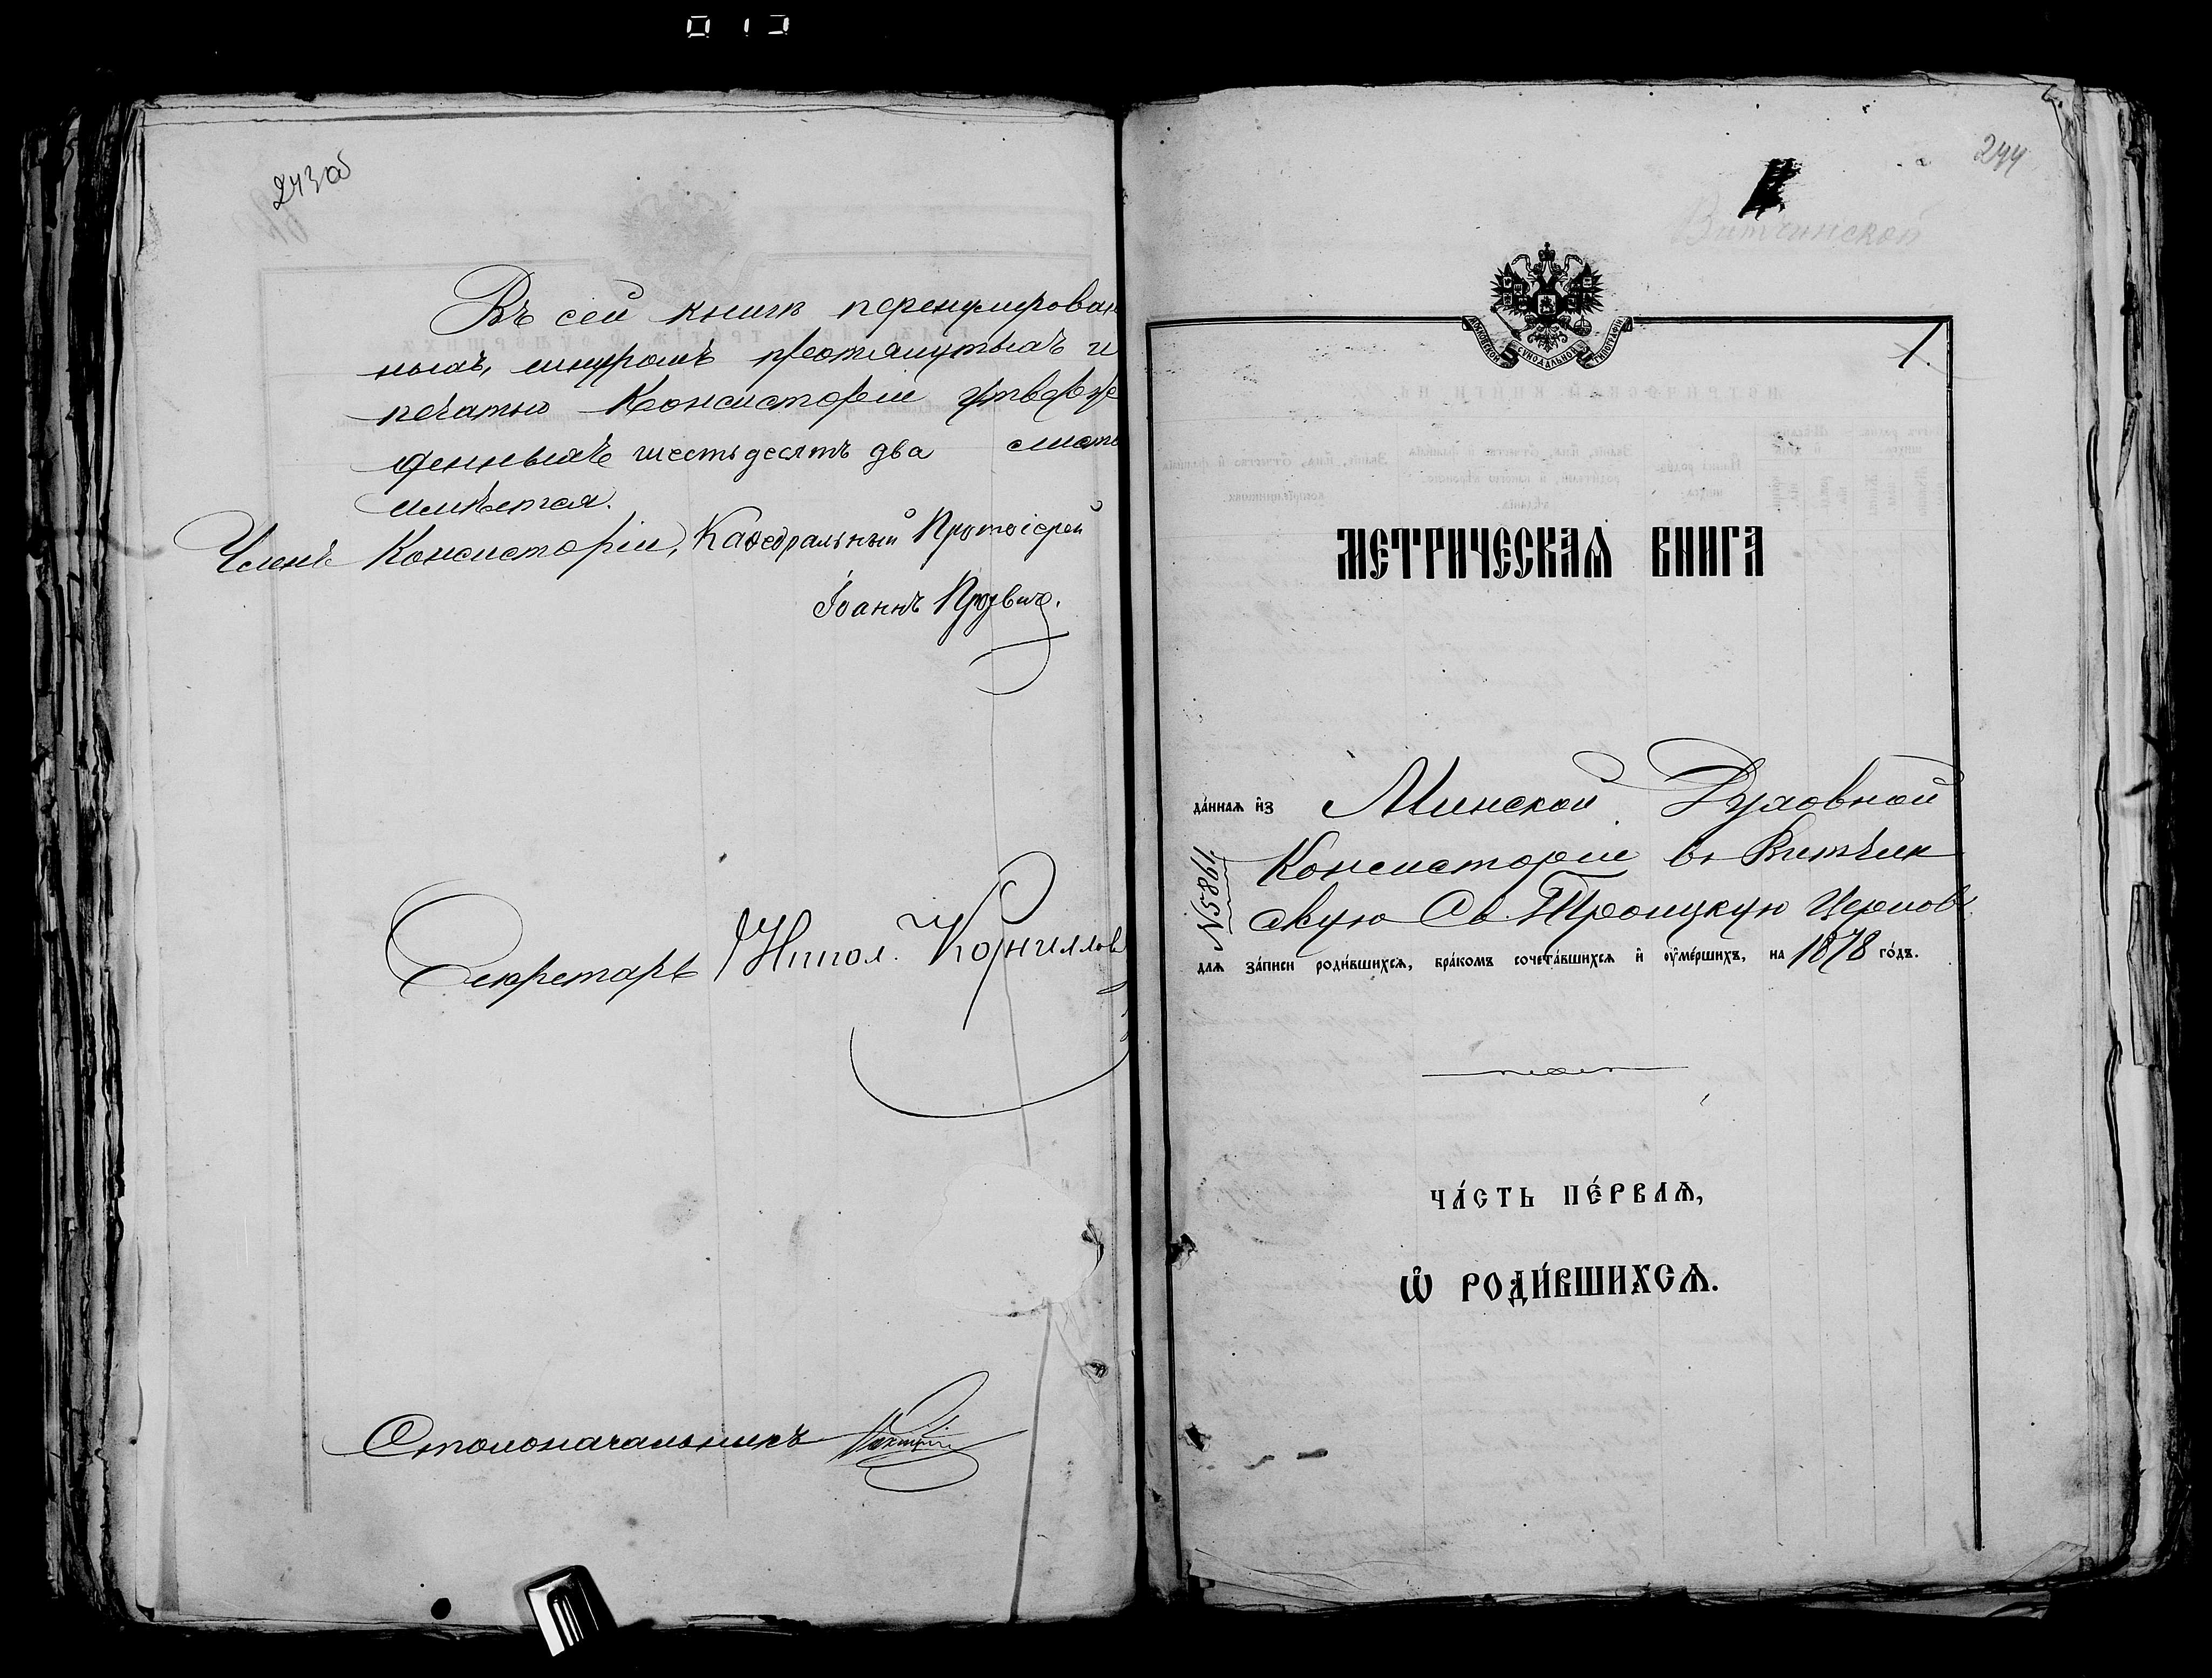 243об
Въ сей книгѣ перенумерован
ныхъ, шнуромъ протянутыхъ и
печатью Консисторіи утверж
денныхъ шестьдесятъ два листа
имѣется.
Членъ Консисторіи, Каѳедральный Протоіерей
Іоаннъ
Секретарь Никол. Корниллов
Столоначальникъ
244
Витчинской
МОСКОВСКОЙ СѴНОДАЛЬНОЙ ТИПОГРАФІИ
1.
МЕТРИЧЕСКАѦ КНИГА
да́ннаѧ и҆з Минской Духовной
Консисторіи въ Витчин
скую Св. Троицкую Церковь
№5861.
длѧ за́писи роди́вшихсѧ, бра́комъ сочета́вшихсѧ и҆ ѹ҆ме́ршихъ, на 1878 го́дъ.
ЧА́СТЬ ПЕ́РВАѦ,
Ѡ҆ РОДИ́ВШИХСѦ.